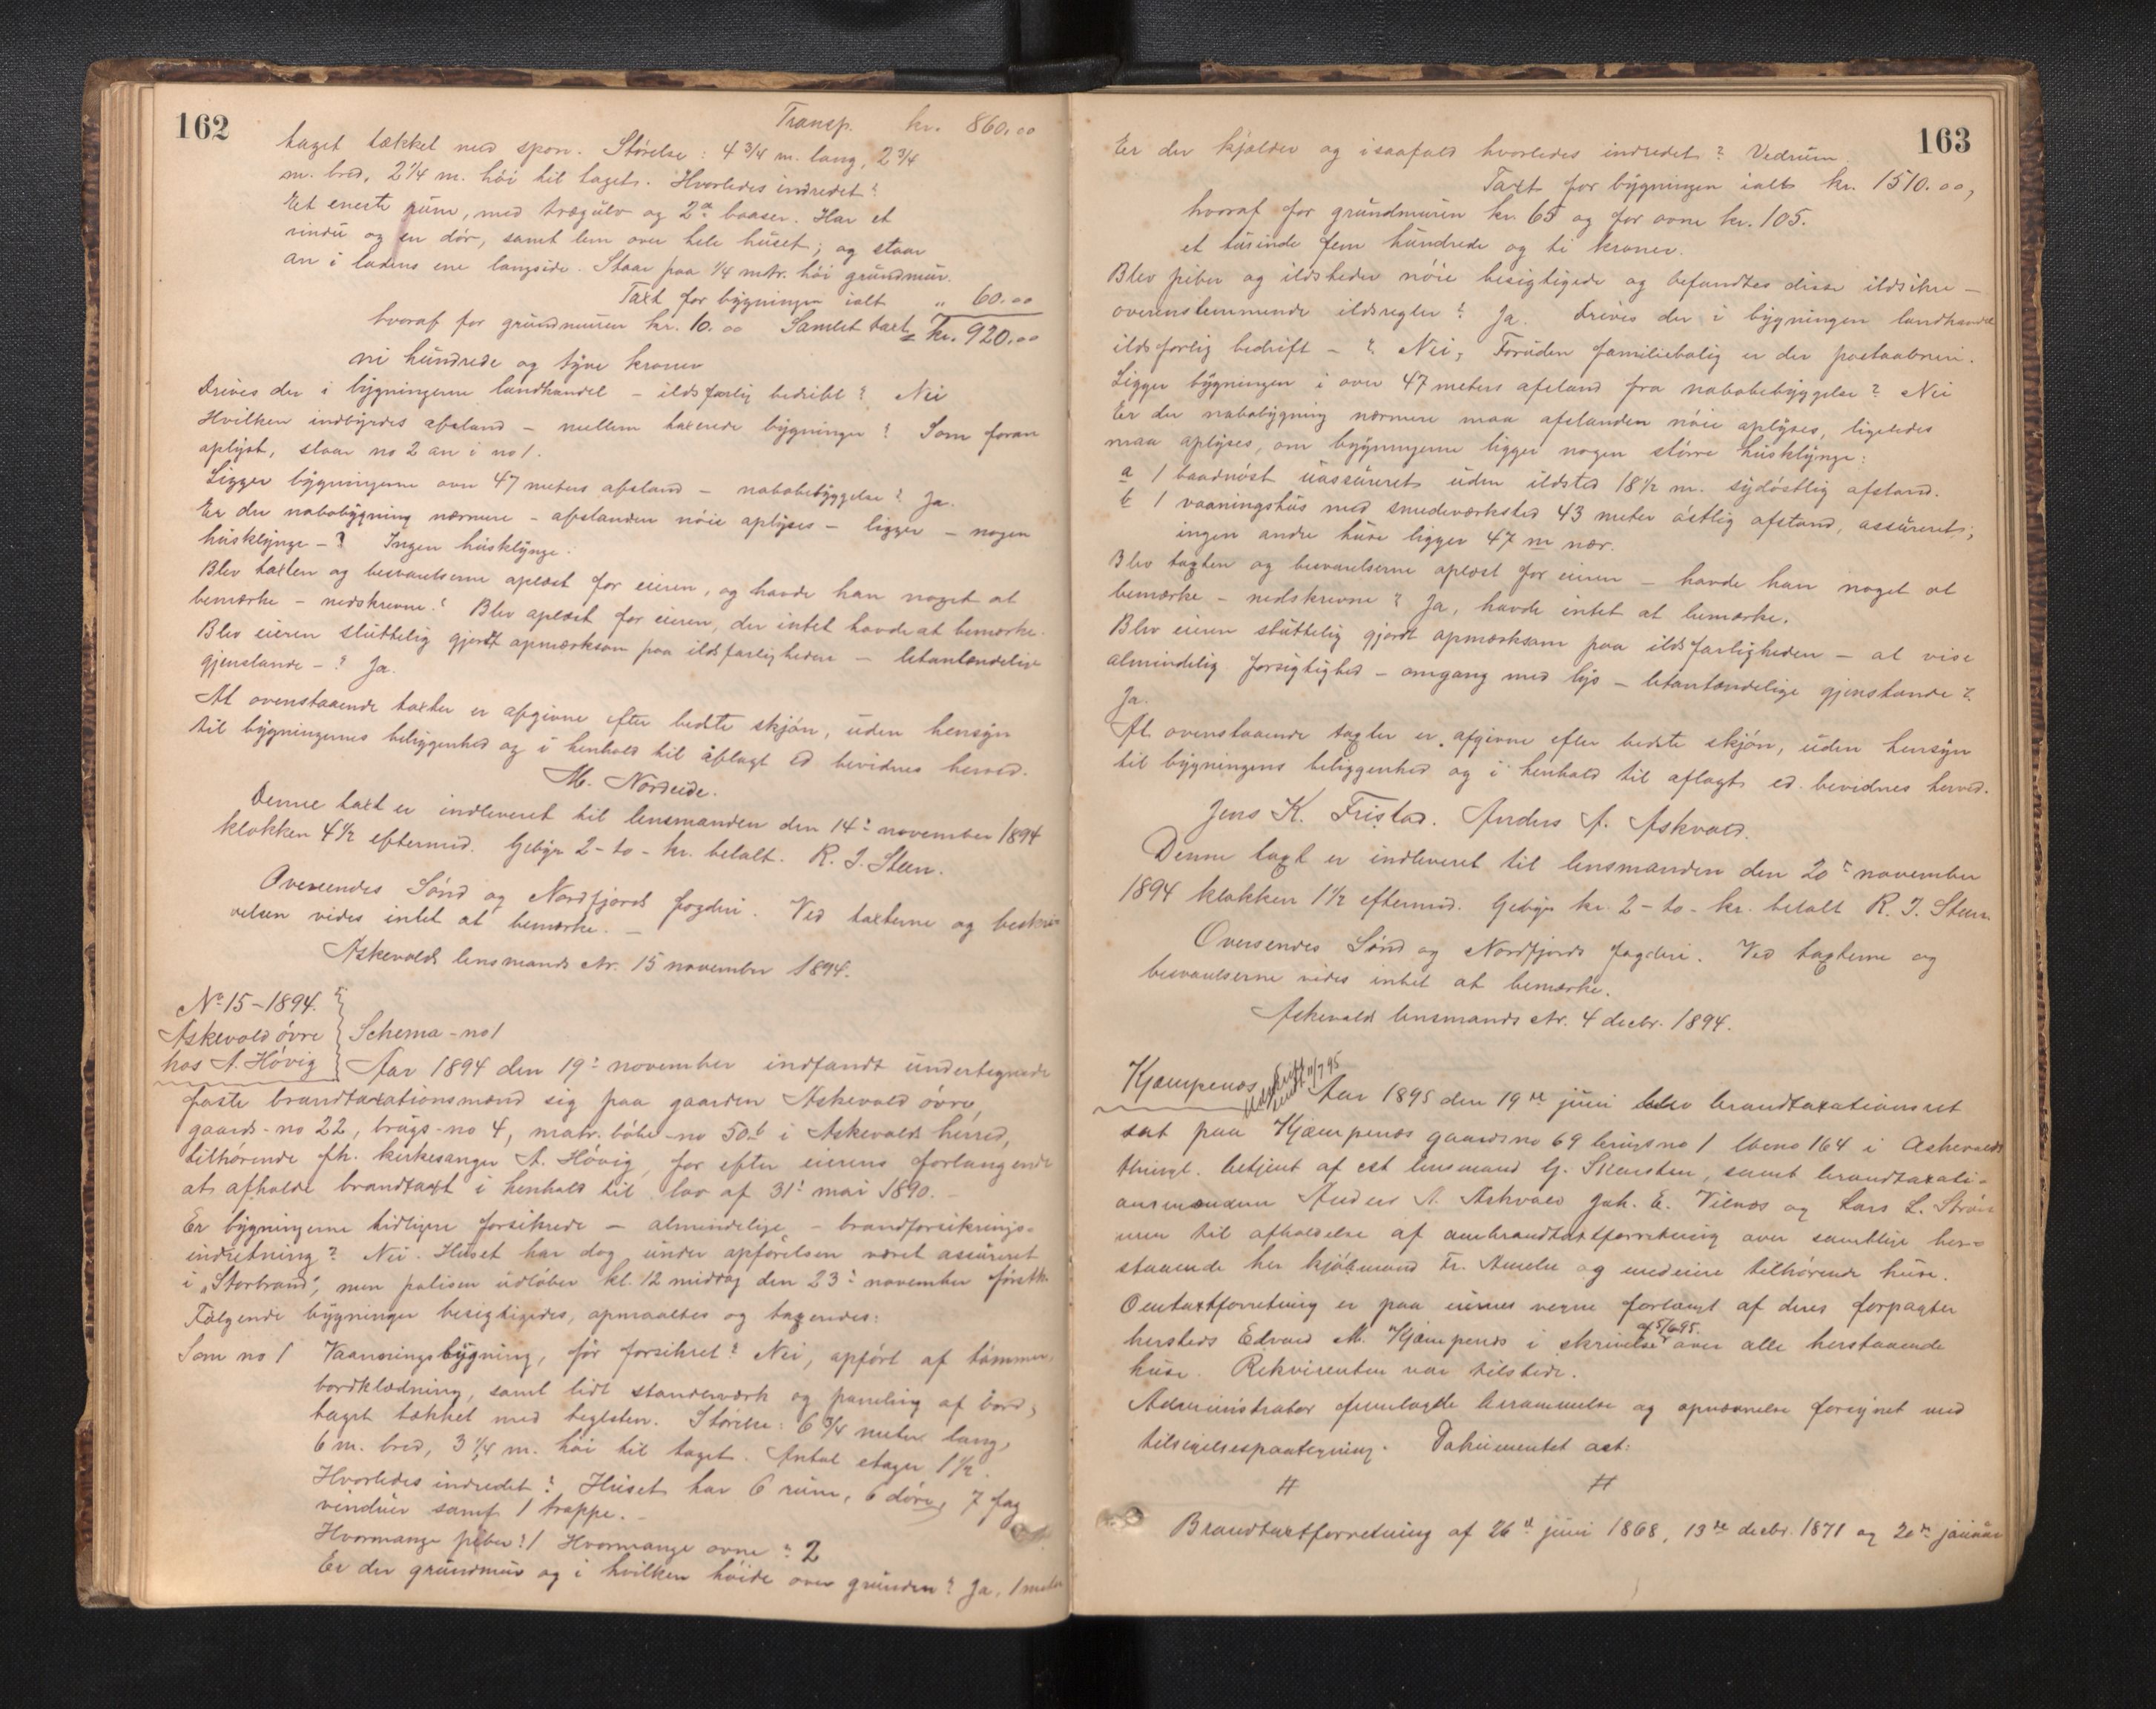 162
Transp. kr. 860.00
taget tækket med spon. Störelse: 4 3/4 m. lang, 2 3/4
m. bred, 2 1/4 m. höi til taget. Hvorledes indredet?
Et eneste rum, med trægulv og 2de baaser. Har et
vindu og en dör, samt lem over hele huset; og staar
an i ladens ene langside. Staar paa 1/4 mtr. höi grundmur.
Taxt for bygningen ialt " 60.00
hvoraf for grundmuren kr. 10.00 Samlet taxt = kr. 920.00
ni hundrede og tyve kroner
Drives der i bygningerne landhandel – ildsfarlig bedribt? Nei
Hvilken indbyrdes afstand – mellem taxerede bygninger? Som foran
oplyst, staar no 2 an i no 1.
Ligger bygningerne over 47 meters afstand – nabobebyggelse? Ja.
Er der nabobygning nærmere – afstanden nöie oplyses – ligger – nogen
husklynge –? Ingen husklynge.
Blev taxten og besvarelserne oplæst for eieren, og havde han noget at
bemærke – nedskrevne? Blev oplæst for eieren, der intet havde at bemærke.
Blev eieren sluttelig gjordt opmærksom paa ildsfarligheden – letantændelige
gjenstande –? Ja.
At ovenstaaende taxter er afgivne efter bedste skjön, uden hensyn
til bygningernes beliggenhed og i henhold til aflagt ed bevidnes herved.
M. Nordeide.
Denne taxt er indleveret til lensmanden den 14: november 1894
klokken 4 1/2 eftermid. Gebyr 2 - to - kr. betalt. R. J. Steen.
Oversendes Sönd og Nordfjords fogderi. Ved taxterne og beskri-
velsen vides intet at bemærke. –
Askevolds lensmands ktr. 15 november 1894.
No 15 – 1894.
Askevold övre
hos A. Hövig
Schema – no 1
Aar 1894 den 19: november indfandt undertegnede
faste brandtaxationsmænd sig paa gaarden Askevold övre,
gaards-no 22, brugs-no 4, matr. löbe-no 50b i Askevolds herred,
tilhörende fh. kirkesanger A. Hövig, for efter eierens forlangende
at afholde brandtaxt i henhold til lov af 31: mai 1890. –
Er bygningerne tidligere forsikrede – almindelige – brandforsikrings-
indretning? Nei. Huset har dog under opförelsen været assureret
i „Storbrand", men polisen udlöber kl. 12 middag den 23: november förstk.
Fölgende bygninger besigtigedes, opmaaltes og taxeredes:
Som no 1 Vaaningsbygning, för forsikret? Nei, opfört af tömmer,
bordklædning, samt lidt standerværk og paneling af bord;
taget tækket med teglsten. Störelse: 6 3/4 meter lang,
6 m. bred, 3 1/4 m. höi til taget. Antal etager 1 1/2.
Hvorledes indredet? Huset har 6 rum, 6 döre, 7 fag
vinduer samt 1 trappe. –
Hvormange piber? 1 Hvormange ovne? 2
Er der grundmur og i hvilken höide over grunden? Ja, 1 meter
163
Er der kjælder og isaafald hvorledes indredet? Vedrum.
Taxt for bygningen ialt kr. 1510.00,
hvoraf for grundmuren kr. 65 og for ovne kr. 105.
et tusinde fem hundrede og ti kroner.
Blev piber og ildsteder nöie besigtigede og befandtes disse ildsikre –
overenstemmende ildsregler? Ja. Drives der i bygningen landhandel
ildsfarlig bedrift –? Nei, Foruden familiebolig er der postaabneri.
Ligger bygningen i over 47 meters afstand fra nabobebyggelse? Nei
Er der nabobygning nærmere maa afstanden nöie oplyses, ligeledes
maa oplyses, om bygningerne ligger nogen större husklynge:
a 1 baadnöst uassureret uden ildsted 18 1/2 m. sydöstlig afstand.
b 1 vaaningshus med smedeværksted 43 meter östlig afstand, assureret;
ingen andre huse ligger 47 m nær.
Blev taxten og besvarelserne oplæst for eieren – havde han noget at
bemærke – nedskrevne? Ja, havde intet at bemærke.
Blev eieren sluttelig gjordt opmærksom paa ildsfarligheden – at vise
almindelig forsigtighed – omgang med lys – letantændelige gjenstande?
Ja.
At ovenstaaende taxter er afgivne efter bedste skjön, uden hensyn
til bygningens beliggenhed og i henhold til aflagt ed bevidnes herved.
Jens K. Fristad. Anders A. Askvold.
Denne taxt er indleveret til lensmanden den 20: november
1894 klokken 1 1/2 eftermid. Gebyr kr. 2 - to - kr. betalt R. J. Steen
Oversendes Sönd og Nordfjords fogderi. Ved taxterne og
besvarelserne vides intet at bemærke.
Askevolds lensmands ktr. 4 decbr. 1894.
Kjæmpenæs
Udskrift 11/7 95
Aar 1895 den 19de juni blev brandtaxationsret
sat paa Kjæmpenæs gaardsno 69 brugsno 1 löbeno 164 i Askevolds
thingl. betjent af cst lensmand G. Skarsten, samt brandtaxati-
onsmændene Anders A. Askvold Joh. E. Vilnæs og Lars L. Ström
men til afholdelse af ombrandtaxtforretning over samtlige her-
staaende her kjöbmand Fr. Amelu og medeiere tilhörende huse.
Omtaxtforretning er paa eiernes vegne forlangt af deres forpagter
hersteds Edvard M. Kjæmpenæs i skrivelse af 5/6 95. over alle herstaaende
huse. Rekvirenten var tilstede.
Administrator fremlagde berammelse og opnævnelse forsynet med
tilsigelsespaategning. Dokumentet act:
# #
Brandtaxtforretning af 26de juni 1868, 13de decbr. 1871 og 20de januar